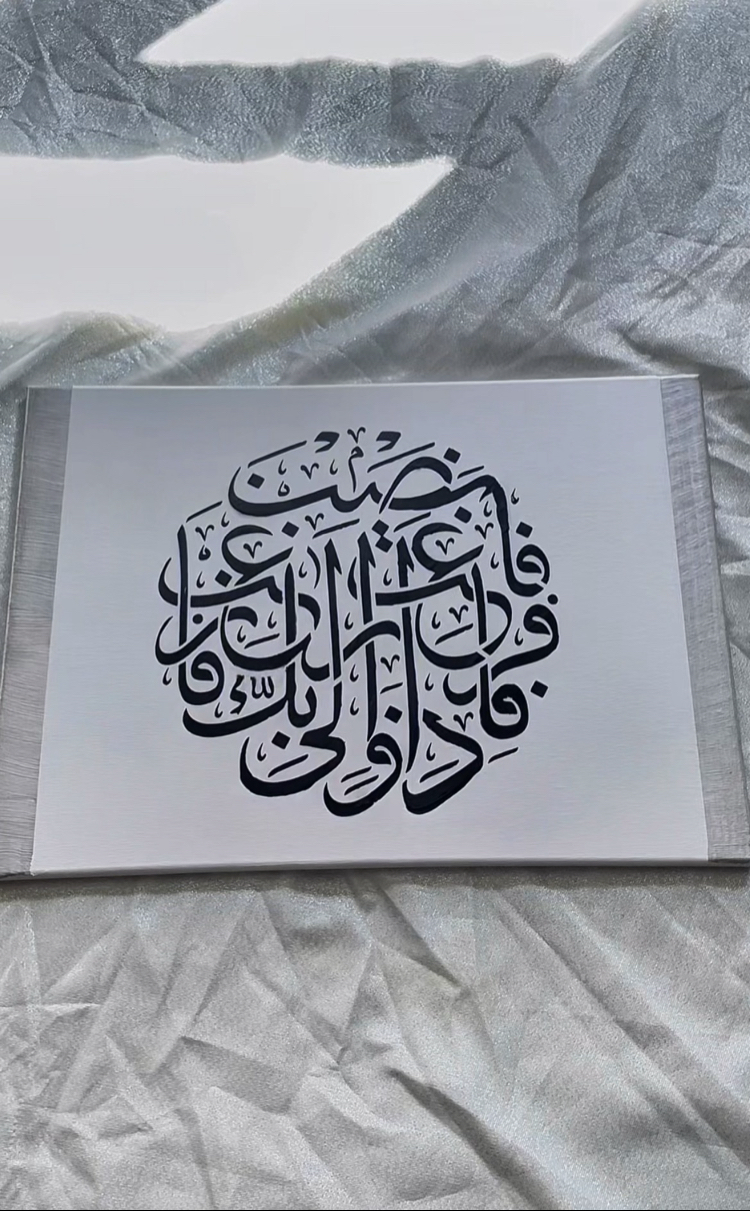 فَإِذَا فَرَغْتَ فَانصَبْ وَإِلَىٰ رَبِّكَ فَارْغَبْ